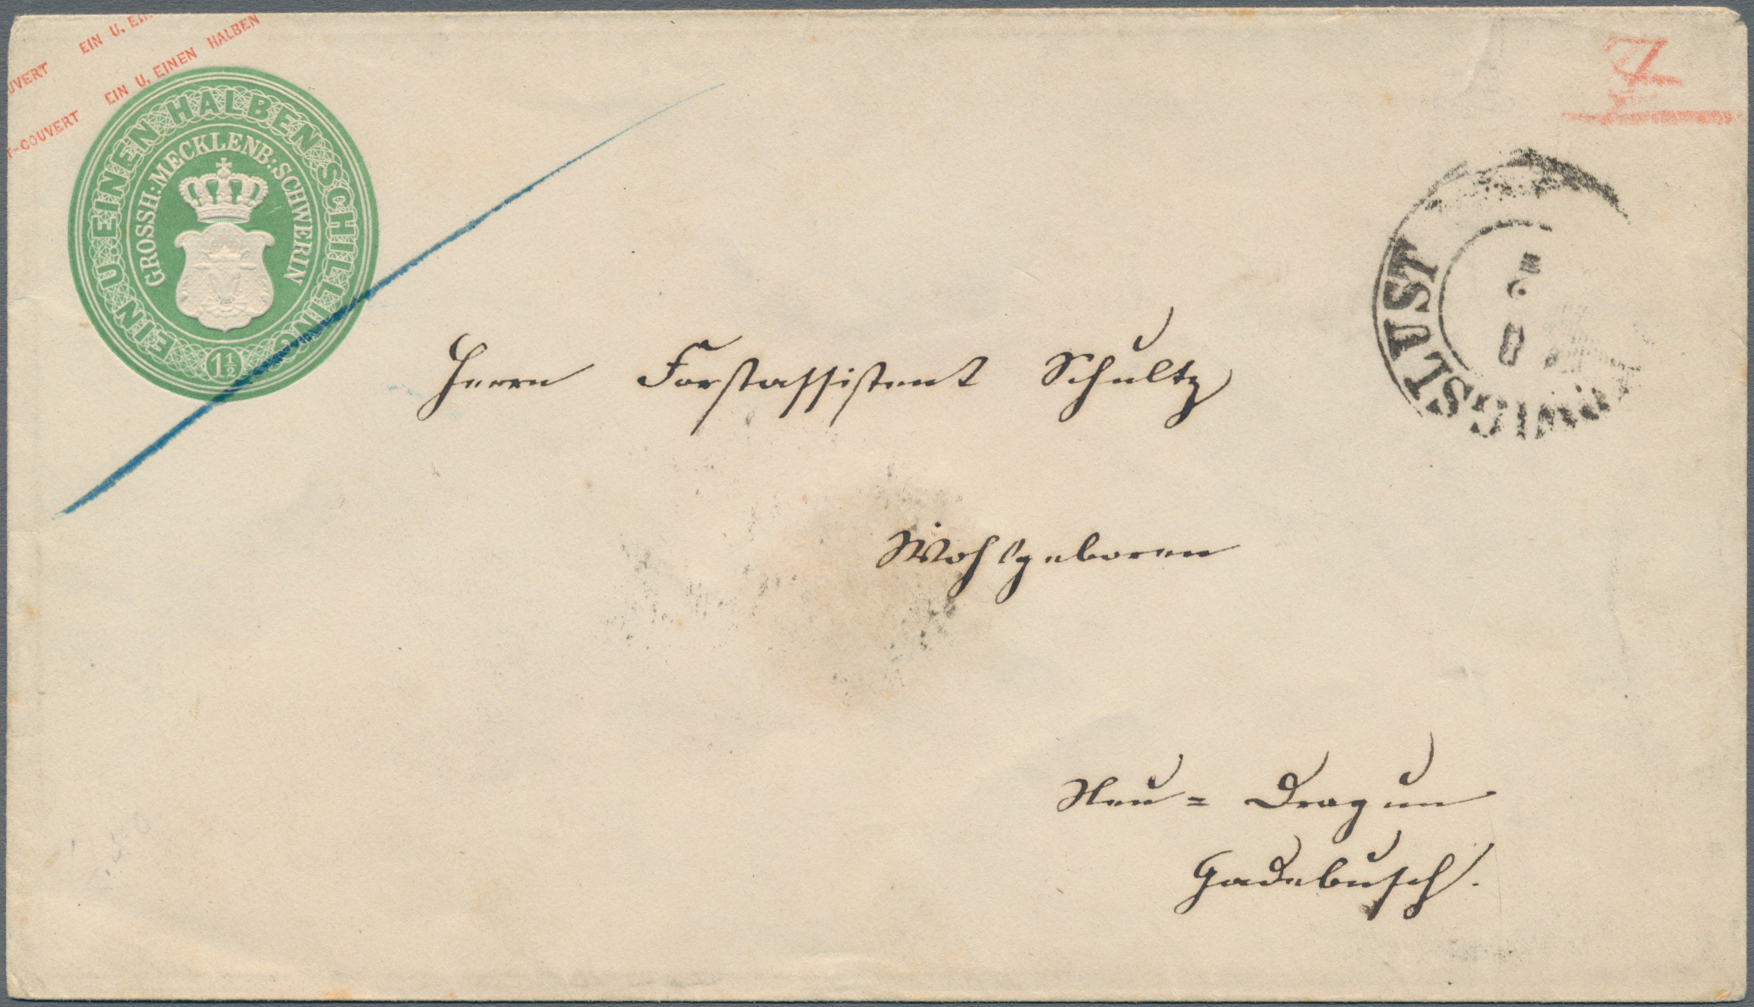 EIN U. EI
UVERT EIN U. EINEN HALBEN
T-COUVERT
EIN U. EINEN HALBEN SCHILLING
GROSSH: MECKLENB: SCHWERIN
1½
LUDWIGSLUST
Herrn Forstassistent Schultz
Wohlgeboren
Neu = Dragun
Gadebusch.